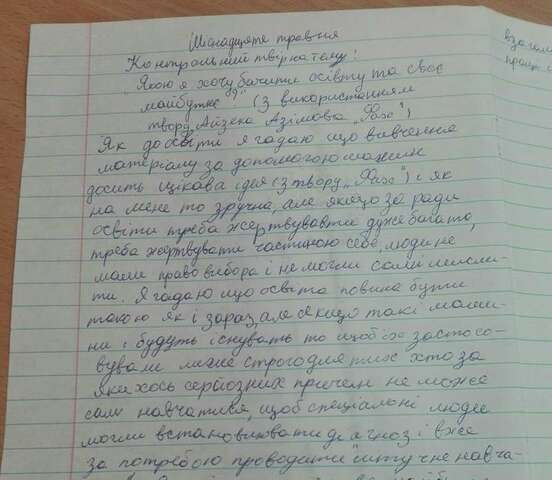 Шістнадцяте травня
Контрольний твір на тему:
"Якою я хочу бачити освіту та своє
майбутнє"? (з використанням
твору Айзека Азімова „Фах")
Як до освіти я гадаю що вивчення
матеріалу за допомогою машин
досить цікава ідея (з твору „Фах") і як
на мене то зручна, але якщо за ради
освіти треба жертвувати дуже багато,
треба жертвувати частиною себе, люди не
мали право вибора і не могли самі мисли-
ти. Я гадаю що освіта повина бути
такою як і зараз але якщо такі маши-
ни і будуть існувать то щоб їх застосо-
вували лише строго для тих хто за
якихось серйозних причин не може
сам навчатися, щоб спеціальні люди
могли встановлювати діагноз і вже
за потребою проводити штучне навча-
взагалі